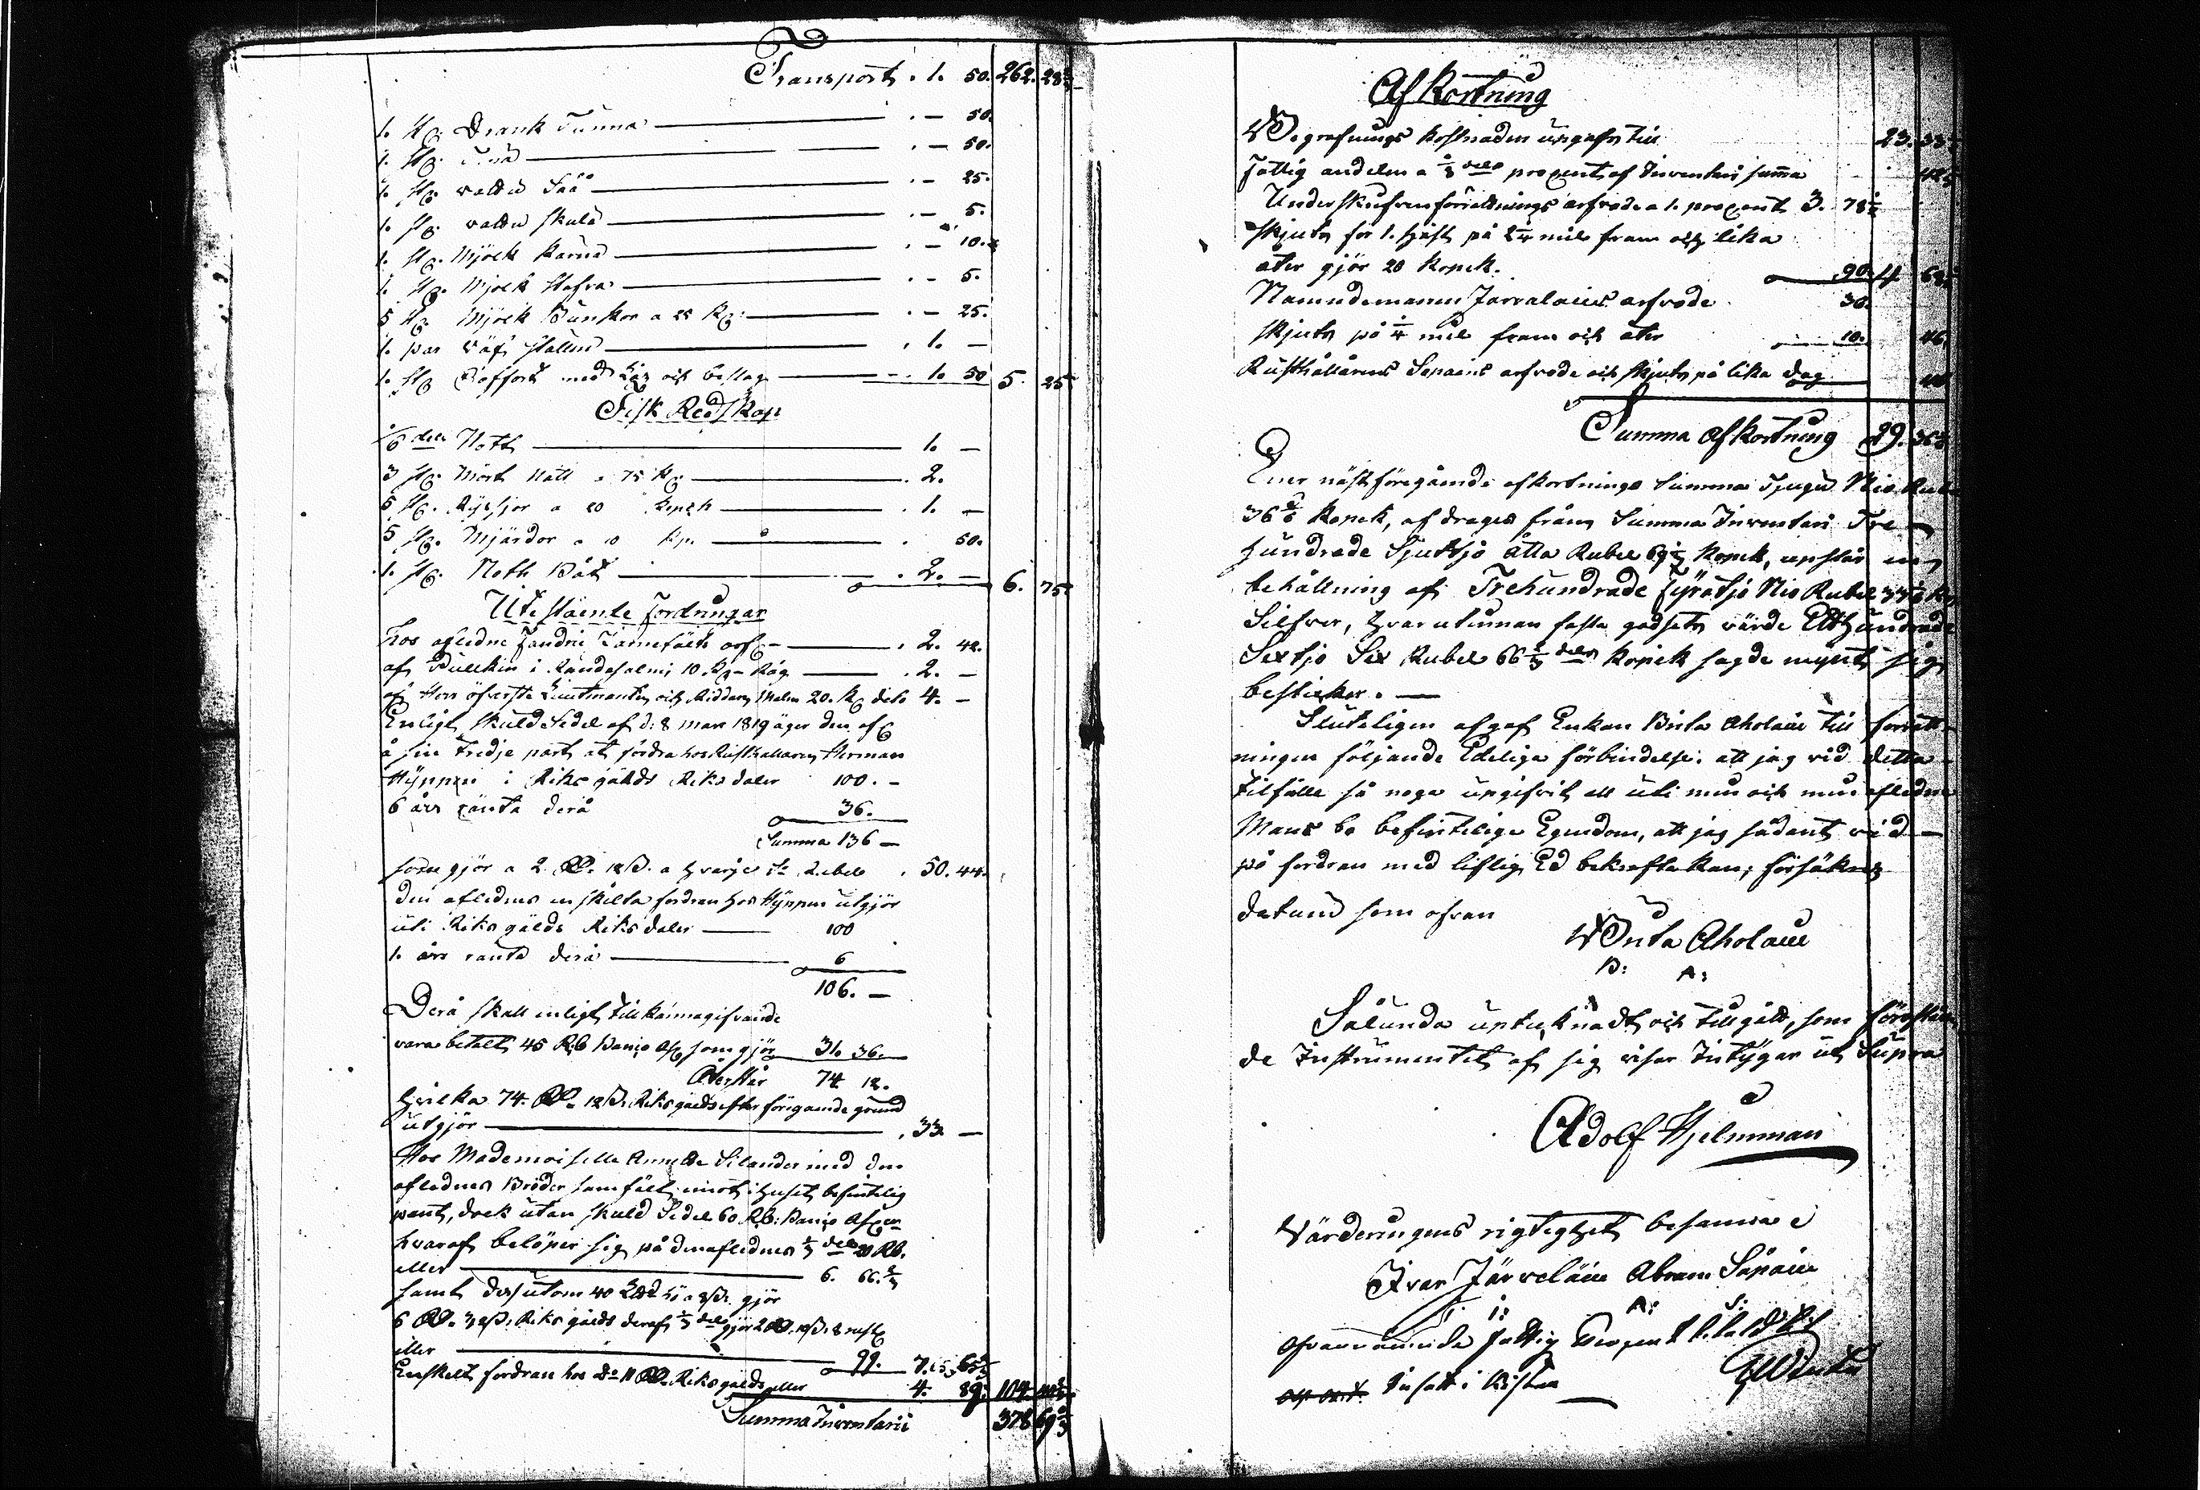 Transport . 1. 50. 262. 28
1. st. Drank Tunna . – 50.
1. st. . – 50.
1. st. vatten Såå . – 25.
1. st. vatten skula . – 5.
1. st. Mjölk Kärna . – 10.
1. st. Mjölk Stafva . – 5.
5 st. Mjölk Bunkor a 25. . – 25.
1. par Väf . 1. –
1. st. Coffort med Lås och beslag 1. 50 5. 25
Fisk Redskap
1/6 dels Noth 1. –
3 st. Mört Nätt a 75 K. . 2.
5 st. Ryssjor a 20 Kopek . 1. –
5 st. Mjärdor a 10 Kp. . 50.
1. st. Noth Båt . 2. – 6. 75
Utestående fordringar
Hos afledne . 2. 42.
af Pulkin i Randasalmi 10. Råg . 2. –
af Herr öfverste Lieutnanten och Riddaren 20. dito 4. –
Enligt skuldsedel af d: 8 mars 1819 äger den afl
å sin tredje part att fordra hos Rusthållaren Herman
Hyppen i Riksgälds Riksdaler 100. –
6 års ränta derå 36.
Summa 136 –
som gjör a 2. Rd. 18 s. a hvarje Rubel . 50. 44.
den aflednes enskilta fordran hos Hyppen utgjör
uti Riksgälds Riksdaler 100
1. års ränta derå 6
106. –
Derå skall enligt tillkännagifvande
vara betalt 45 Rb Banco Ass som gjör 31. 36.
Återstår 74 12.
hvilka 74. Rd. 12 s. Riksgälds efter föregående grund
utgjör . 33. –
Hos Mademoiselle Silander med den
afledne Broder samfält emot i huset befintelig
pant, dock utan skuld Sedel 60 Rb: Banco Ass
hvaraf belöper sig på den aflednes 1/3 del 20 Rb.
eller 6. 66.
samt dessutom 40 hö a 8 s. gjör
6 Rd. 32 s. Riksgälds deraf 1/3 del gjör 2 Rd.
eller 99. 7. 65
Enskilt fordran hos Do 11 Rd. Riksgälds eller 4. 89. 104
Summa Inventarii 378 69
Afkortning
Begrafnings kostnaden upgafs till 23.
Fattig andelen a 1/8 dels procent af Inventarii summa
Underskrefven förrättnings arfvode a 1. procent 3. 78
Skjuts för 1. häst på 2 1/4 mil fram och lika
åter gjör 20 Kopek. 90. 4
Nämndemannen Järveläines arfvode 36.
Skjuts på 1/4 mil fram och åter 10. 46.
Rusthållarens Sapains arfvode och skjuts på lika dag
Summa Afkortning 29. 36
Ener nästföregående afkortnings Summa Tjugu Nio Rub
36 5/6 Kopek, af drages från Summa Inventarii Tre
hundrade Sjuttjo Åtta Rubel 69 Kopek, upstår en
behållning af Trehundrade fyratjo Nio Rubel
Silfver, hvarutinnan fasta godsets värde Etthundrade
Sextjo Sex Rubel 66 2/3 dels Kopek sagde mynt sig
bestiger. –
Sluteligen afgaf Enkan Brita Aholain till förrätt
ningen följande Edeliga förbindelse: att jag vid detta
tilfälle så noga upgifvit all uti min och min afledne
Mans bo befintelige Egendom, att jag sådant vid
på fordran med liflig Ed bekräfta kan; försäkras
datum som ofvan
Brita Aholain
B: A:
Sålunda uptecknadt och tillgått, som förestån
de Instrumentet af sig viser Intygar ut Supra
Adolf Hjelmman
Värderingens rigtighet besannas
Ivar Järveläin Abram Sapain
I: J: A: S:
Ofvannämnde fattig Procent
Insatt i Kistan